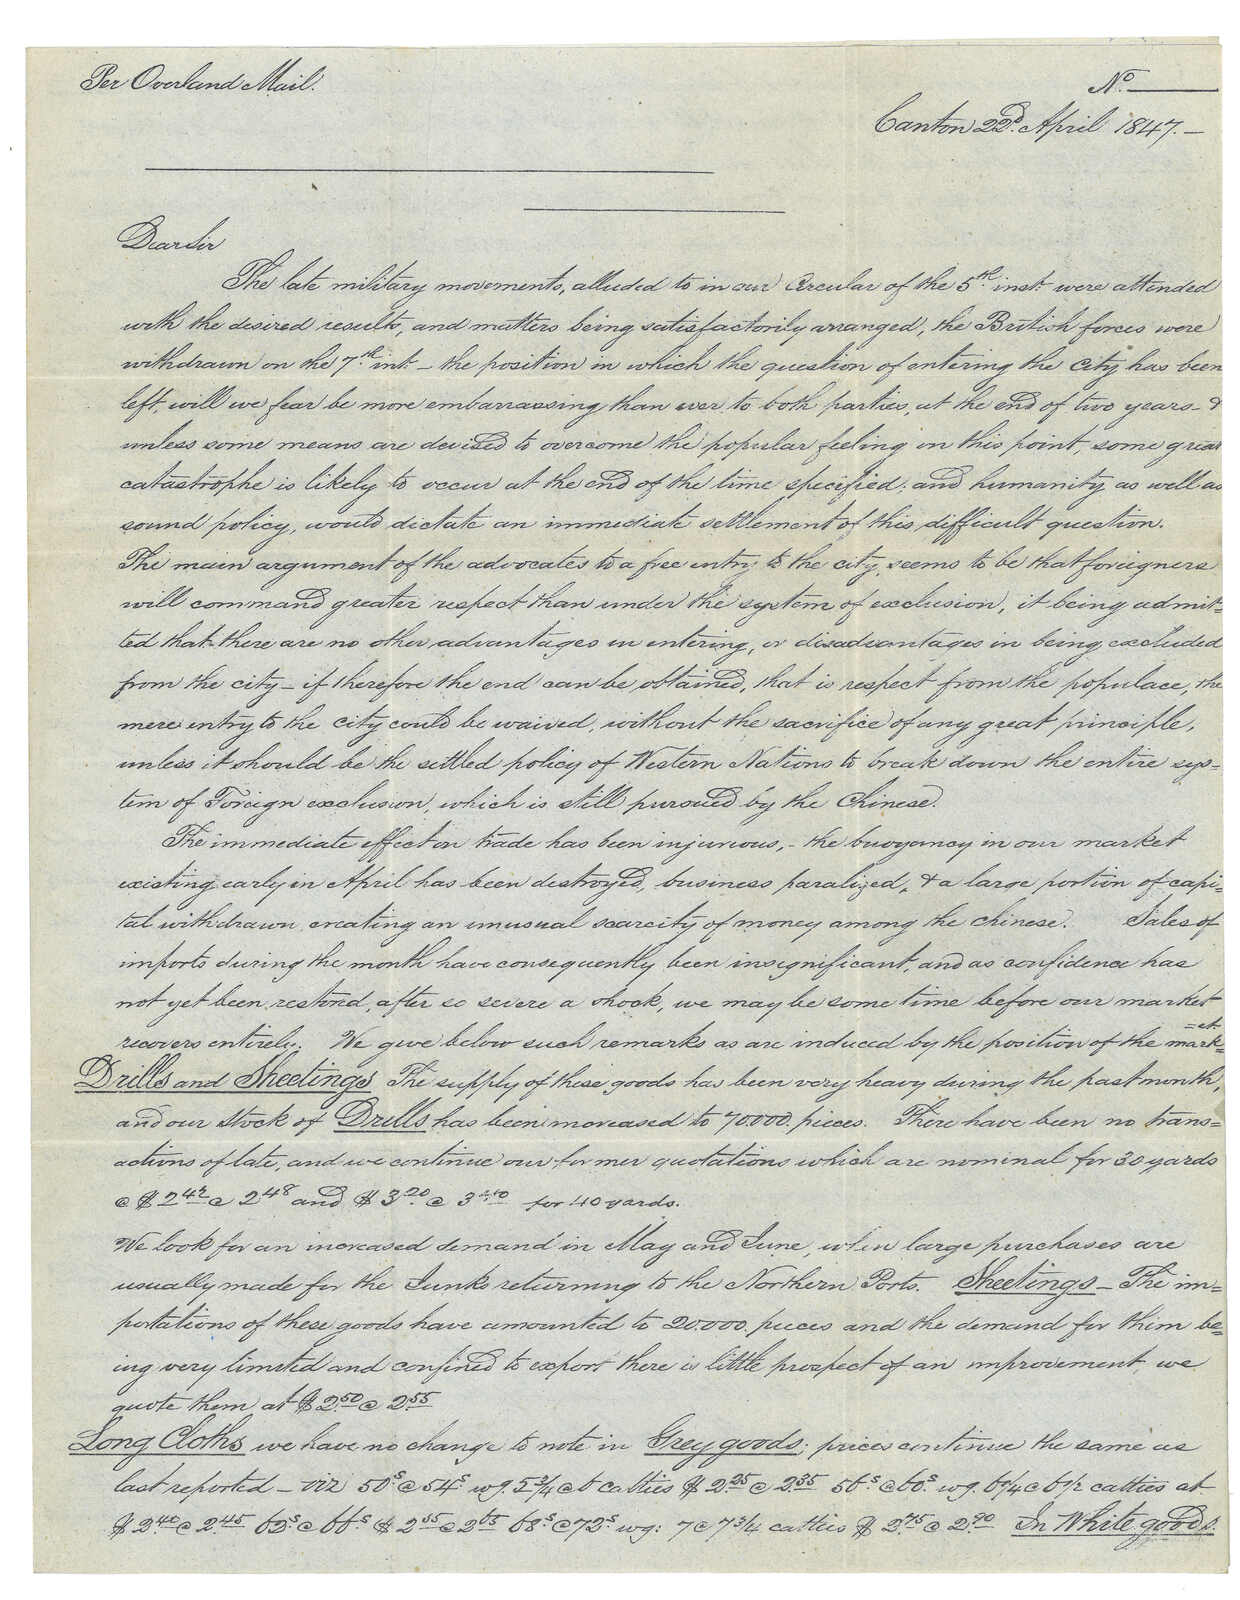 Per Overland Mail.
No.
Canton 22d. April 1847. —
Dear Sir
The late military movements, alluded to in our Circular of the 5th. inst. were attended
with the desired results, and matters being satisfactorily arranged, the British forces were
withdrawn on the 7th. int. — the position in which the question of entering the city has been
left, will we fear be more embarrassing than ever to both parties, at the end of two years — &
unless some means are devised to overcome the popular feeling in this point, some great
catastrophe is likely to occur at the end of the time specified; and humanity as well as
sound policy, would dictate an immediate settlement of this difficult question.
The main argument of the advocates to a free entry to the city, seems to be that foreigners
will command greater respect than under the system of exclusion, it being admit=
ted that there are no other advantages in entering, or disadvantages in being excluded
from the city — if therefore the end can be obtained, that is respect from the populace, the
mere entry to the city could be waived, without the sacrifice of any great principle,
unless it should be the settled policy of Western Nations to break down the entire sys=
tem of Foreign exclusion, which is still pursued by the Chinese.
The immediate effect on trade has been injurious, - the buoyancy in our market
existing early in April has been destroyed, business paralized, & a large portion of capi=
tal withdrawn creating an unusual scarcity of money among the Chinese. Sales of
imports during the month have consequently been insignificant, and as confidence has
not yet been restored, after so severe a shock, we may be some time before our market
recovers entirely. We give below such remarks as are induced by the position of the mark=
=et.
Drills and Sheetings The supply of these goods has been very heavy during the past month,
and our stock of Drills has been increased to 70.000. pieces. There have been no trans=
actions of late, and we continue our former quotations which are nominal for 30 yards
@ $ 2 42 @ 2 48 and $ 3 20 @ 3 40 for 40 yards.
We look for an increased demand in May and June, when large purchases are
usually made for the Junks returning to the Northern Ports. Sheetings — The im=
portations of these goods have amounted to 20.000. pieces and the demand for them be=
ing very limited and confined to export there is little prospect of an improvement, we
quote them at $ 2 50 @ 2 55
Long Cloths we have no change to note in Grey goods; prices continue the same as
last reported — viz 50s @ 54s wg. 5 3/4 @ 6 catties $ 2 25 @ 2 35 56s @ 60s wg. 6 1/4 @ 6 1/2 catties at
$ 2 40 @ 2 45 62s @ 66s $ 2 55 @ 2 65 68s @ 72s wg: 7 @ 7 3/4 catties $ 2 75 @ 2 90 In White goods.